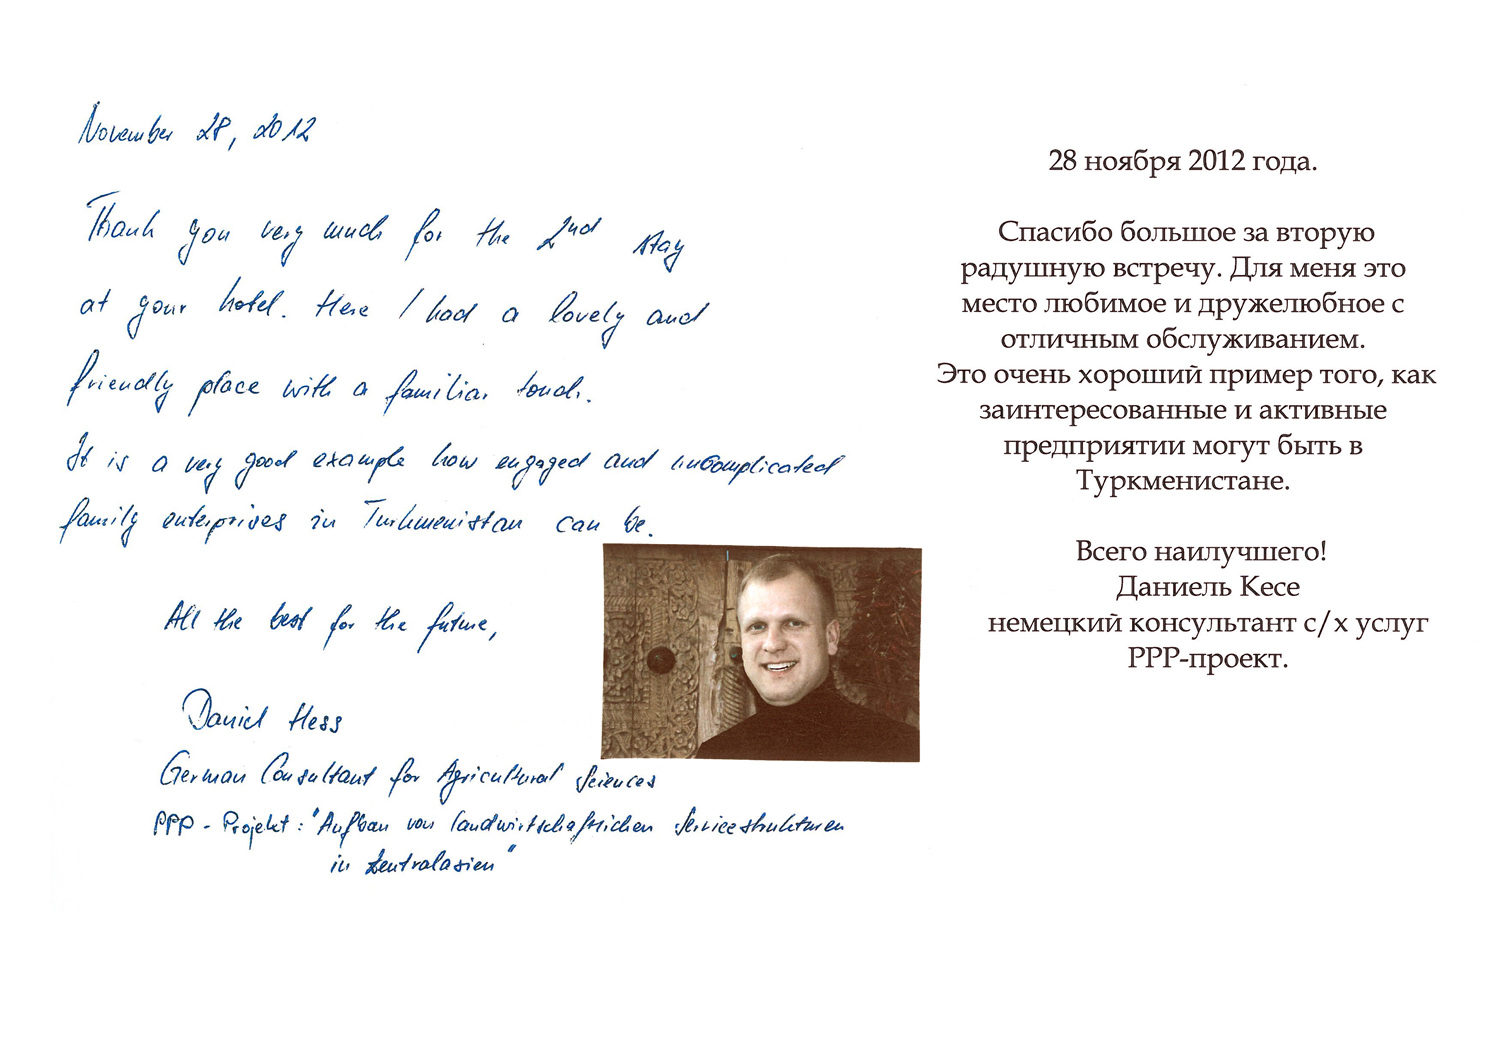 November 28, 2012
Thank you very much for the 2nd stay
at your hotel. Here I had a lovely and
friendly place with a familiar touch.
It is a very good example how engaged and uncomplicated
family enterprises in Turkmenistan can be.
All the best for the future,
Daniel Hess
German Consultant for Agricultural Sciences
PPP - Projekt: "Aufbau von landwirtschaftlichen Servicestrukturen
in Zentralasien"
28 ноября 2012 года.
Спасибо большое за вторую
радушную встречу. Для меня это
место любимое и дружелюбное с
отличным обслуживанием.
Это очень хороший пример того, как
заинтересованные и активные
предприятии могут быть в
Туркменистане.
Всего наилучшего!
Даниель Кесе
немецкий консультант с/х услуг
РРР-проект.